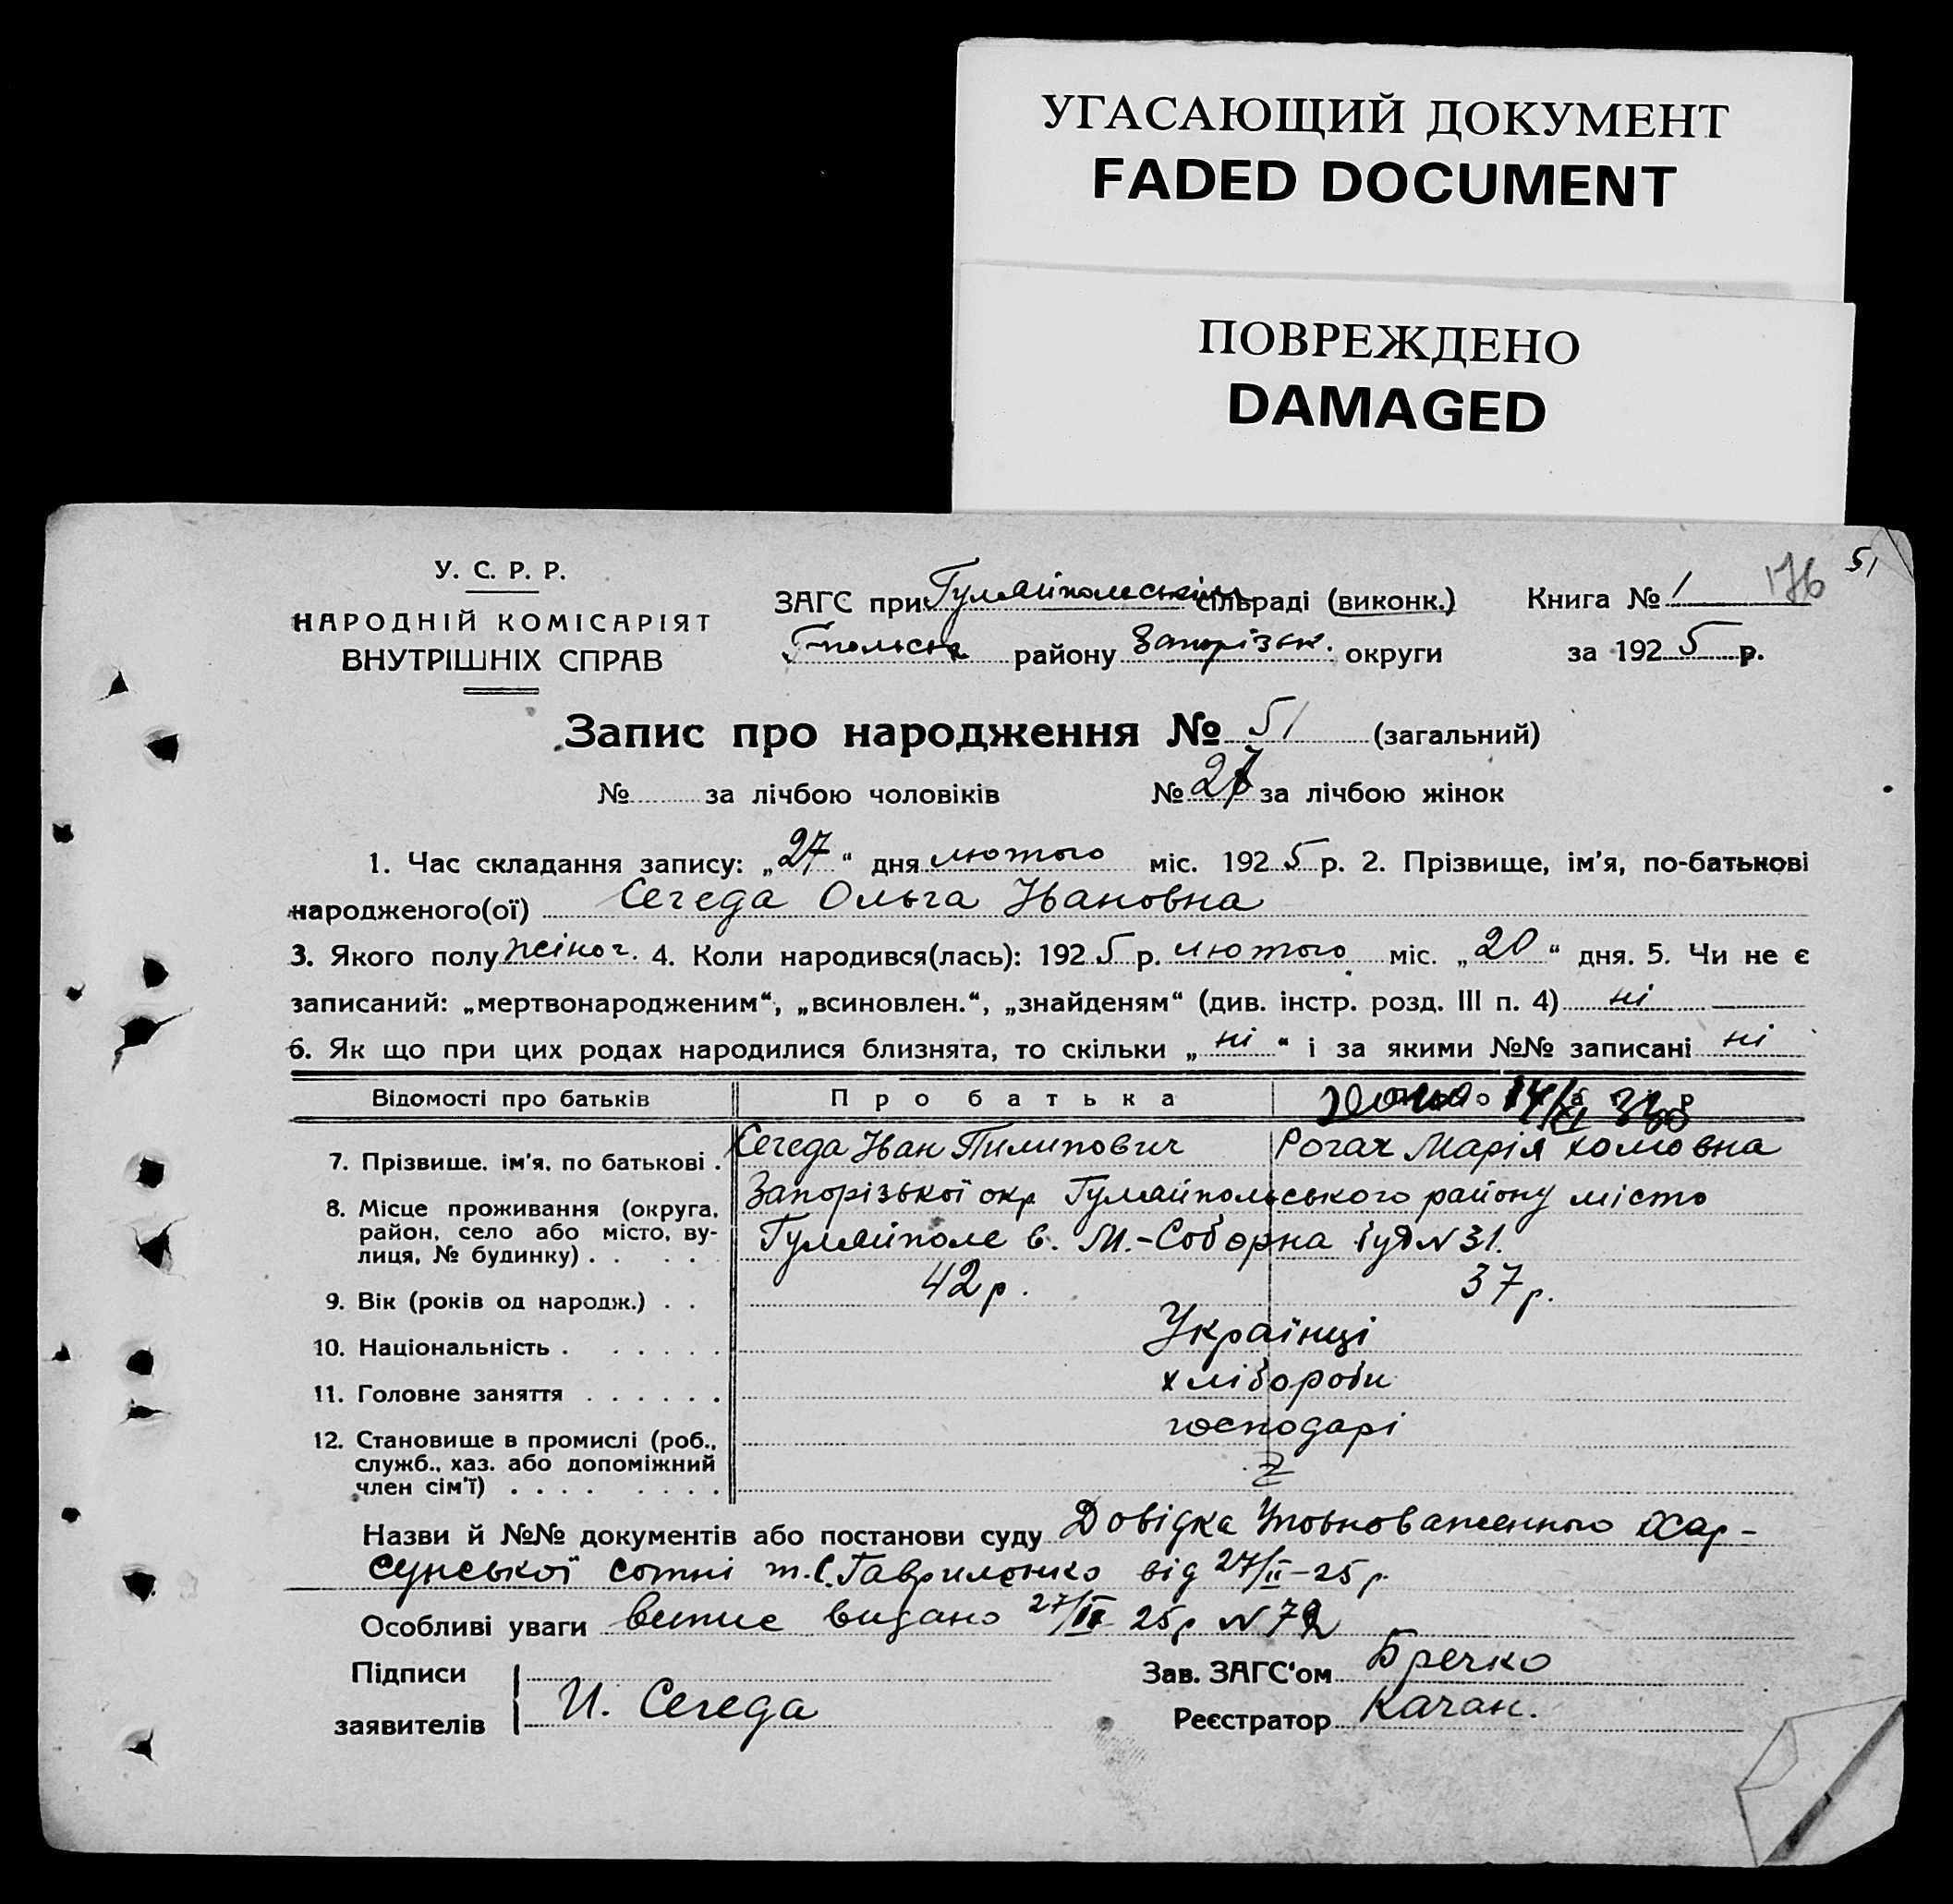 УГАСАЮЩИЙ ДОКУМЕНТ
FADED DOCUMENT
ПОВРЕЖДЕНО
DAMAGED
51
176
У. С. Р. Р.
НАРОДНІЙ КОМІСАРІЯТ
ВНУТРІШНІХ СПРАВ
ЗАГС при Гуляйпольським сільраді (виконк.)
Гпольськ району Запорізьк. округи
Книга № 1
за 1925 р.
Запис про народження № 51 (загальний)
№ за лічбою чоловіків № 27 за лічбою жінок
1. Час складання запису: „27“ дня лютого міс. 1925 р. 2. Прізвище, ім'я, по-батькові
народженого(ої) Сегеда Ольга Ивановна
3. Якого полу жіноч. 4. Коли народився(лась): 1925 р. лютого міс. „20“ дня. 5. Чи не є
записаний: „мертвонародженим“, „всиновлен.“, „знайденям“ (див. інстр. розд. III п. 4) ні
6. Як що при цих родах народилися близнята, то скільки „ні“ і за якими №№ записані ні
Відомості про батьків Про батька
7. Прізвище, ім'я, по батькові . Сегеда Иван Пилипович Рогач Марія Хомовна
8. Місце проживання (округа, Запорізької окр Гуляйпольського району місто
район, село або місто, ву- Гуляйполе в. М.-Соборна буд N 31.
лиця, № будинку) . . . .
9. Вік (років од народж.) . . 42 р. 37 р.
10. Національність . . . . . . Українці
11. Головне заняття . . . . . . хлібороби
12. Становище в промислі (роб., господарі
служб., хаз. або допоміжний
член сім'ї) . . . . . . . .
Назви й №№ документів або постанови суду Довідка Уповноваженного Хар-
сунської сотні т. С. Гавриленко від 27/II-25 р.
Особливі уваги випис видано 27/II 25 р N 72
Підписи
заявителів И. Сегеда
Зав. ЗАГС'ом Бречко
Реєстратор Качан.